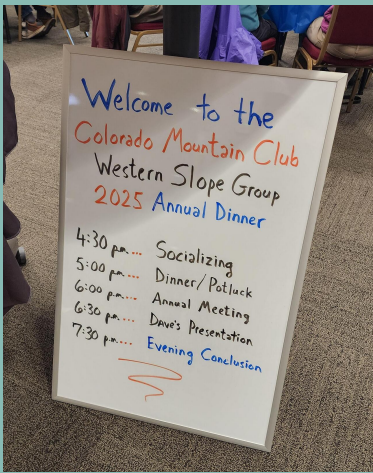 Welcome to the
Colorado Mountain Club
Western Slope Group
2025 Annual Dinner
4:30 p.m.... Socializing
5:00 p.m.... Dinner/Potluck
6:00 p.m.... Annual Meeting
6:30 p.m.... Dave's Presentation
7:30 p.m.... Evening Conclusion